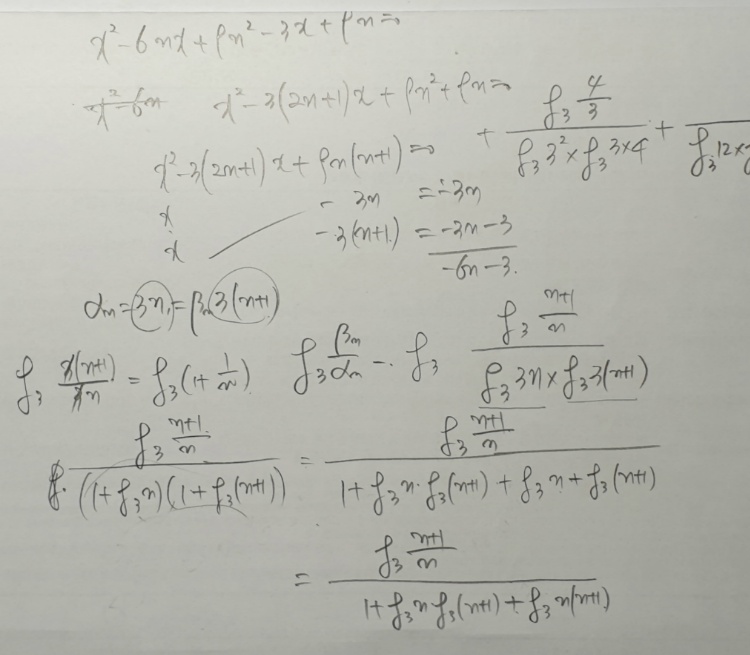 x²-6nx+9n²-3x+9n=0
x²-6n x²-3(2n+1)x+9n²+9n=0
x²-3(2n+1)x+9n(n+1)=0 + (f₃ 4/3)/(f₃ 3² × f₃ 3×4) +
x -3n = -3n
x -3(n+1) = -3n-3
-6n-3.
αn=3n, =βn 3(n+1)
f₃ 3(n+1)/3n = f₃(1+1/n) f₃ βn/αn = f₃ (f₃ (n+1)/n)/(f₃ 3n × f₃ 3(n+1))
(f₃ (n+1)/n)/((1+f₃n)(1+f₃(n+1))) = (f₃ (n+1)/n)/(1+f₃n·f₃(n+1)+f₃n+f₃(n+1))
= (f₃ (n+1)/n)/(1+f₃n f₃(n+1)+f₃n(n+1))